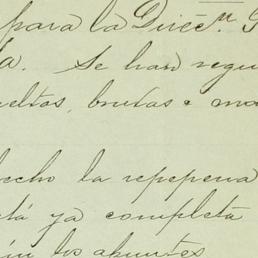 para la Direc.n G
a. Se han regu
ueltos, brutas e ma
echo la repepena
tá ya completa
ún los apuntes